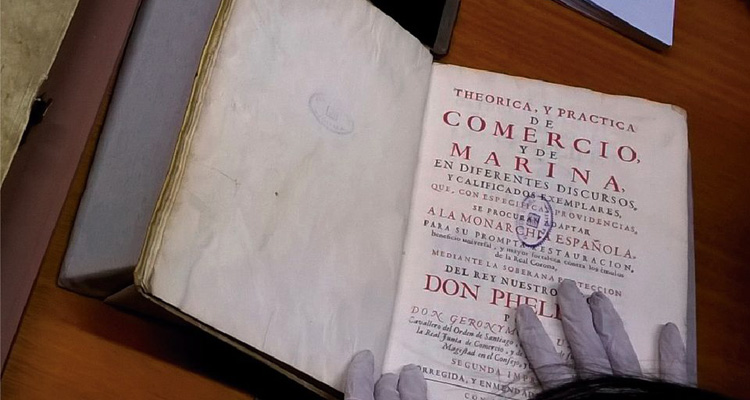 THEORICA, Y PRACTICA
DE
COMERCIO,
Y DE
MARINA,
EN DIFERENTES DISCURSOS,
Y CALIFICADOS EXEMPLARES,
QUE, CON ESPECIFICAS PROVIDENCIAS,
SE PROCURAN ADAPTAR
A LA MONARCHIA ESPAÑOLA,
PARA SU PROMPTA RESTAURACION,
beneficio universal, y mayor fortaleza contra los émulos
de la Real Corona,
MEDIANTE LA SOBERANA PROTECCION
DEL REY NUESTRO
DON PHELI
DON GERONYM
Cavallero del Orden de Santiago
la Real Junta de Comercio, y de
Magestad en el Consejo, y
SEGUNDA IMP
ORREGIDA, Y ENMENDA